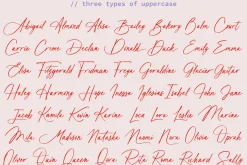 // three types of uppercase
Abigail Almond Alisa Bailey Bakery Balm Court
Carrie Crome Declan Donald Duck Emily Emma
Elsa Fitzgerald Fridman Freya Geraldine Glacier Guitar
Haley Harmony Hope Inessa Iglesias Isabel John Jane
Jacob Kamila Kevin Karine Loca Lore Leslie Marine
Mila Madison Natasha Naomi Nora Olivia Oprah
Oliver Queen Dora Rita Rome Richard